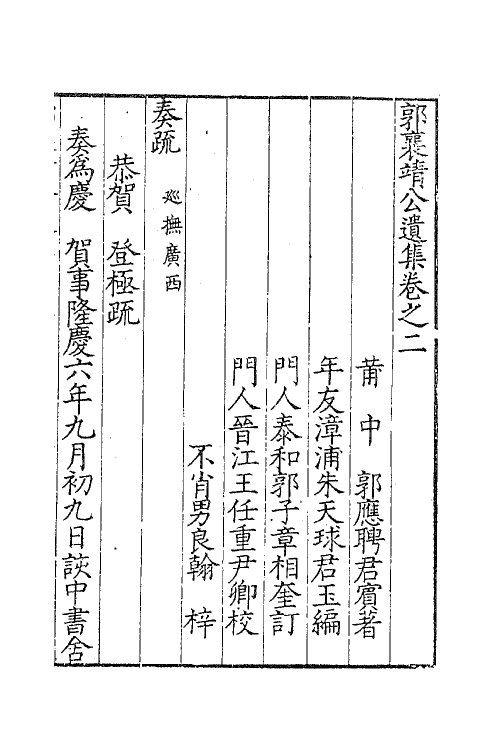 郭襄靖公遺集卷之二
莆中 郭應聘君賓著
年友漳浦朱天球君玉編
門人泰和郭子章相奎訂
門人晉江王任重尹卿校
不肖男良翰 梓
奏疏 廵撫廣西
恭賀 登極疏
奏為慶 賀事隆慶六年九月初九日該中書舍